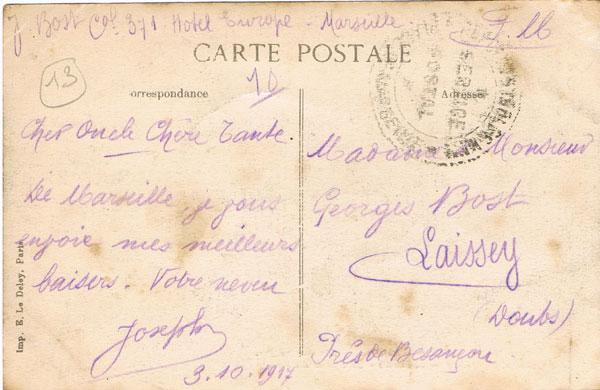 J. Bost Cal 371 Hotel Europe - Marseille. F.M
CARTE POSTALE
13
10
orrespondance
Adresse
SERVICE
POSTAL
Cher Oncle Chère Tante.
De Marseille, je vous
envoie mes meilleurs
baisers. Votre neveu
Joseph
3.10.1917
Madame Monsieur
Georges Bost
Laissey
(Doubs)
Près de Besançon
Imp. E. Le Deley, Paris